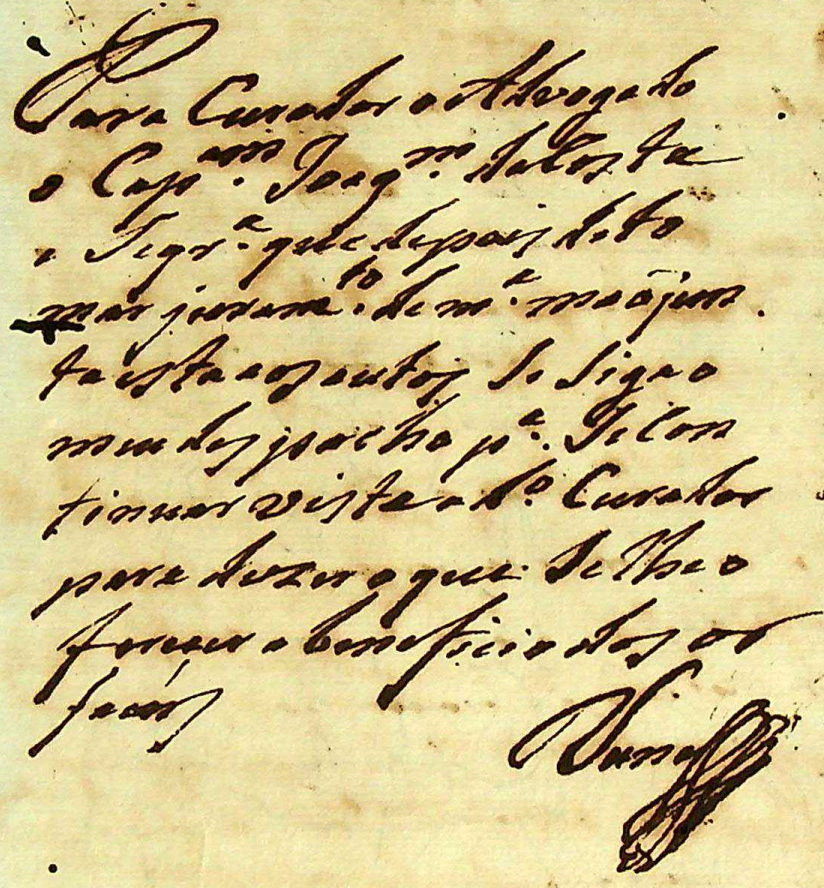 Para Curador o Advogado
o Cap.am Joaq.m da Costa
e Seqr.a que depois de to
mar juram.to de m.a mão jun
ta esta aos autos se siga o
meu despacho p.a se Con
tinuar vista ad.o Curador
para dizer o que se lhe o
ferecer a beneficio dos or
faos
Viana